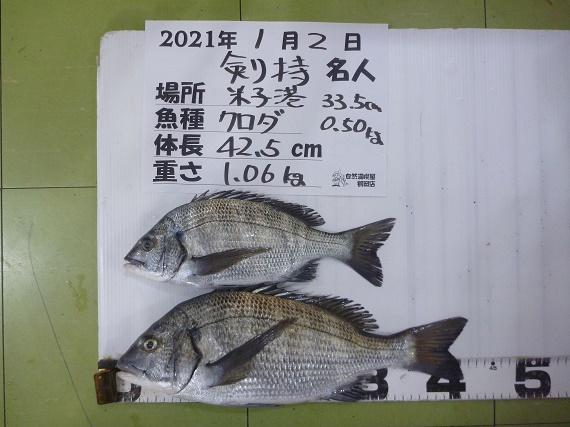 2021年 1月2日
釼持 名人
場所 米子港 33.5cm
魚種 クロダ 0.50kg
体長 42.5 cm
重さ 1.06kg
3 4 45 5